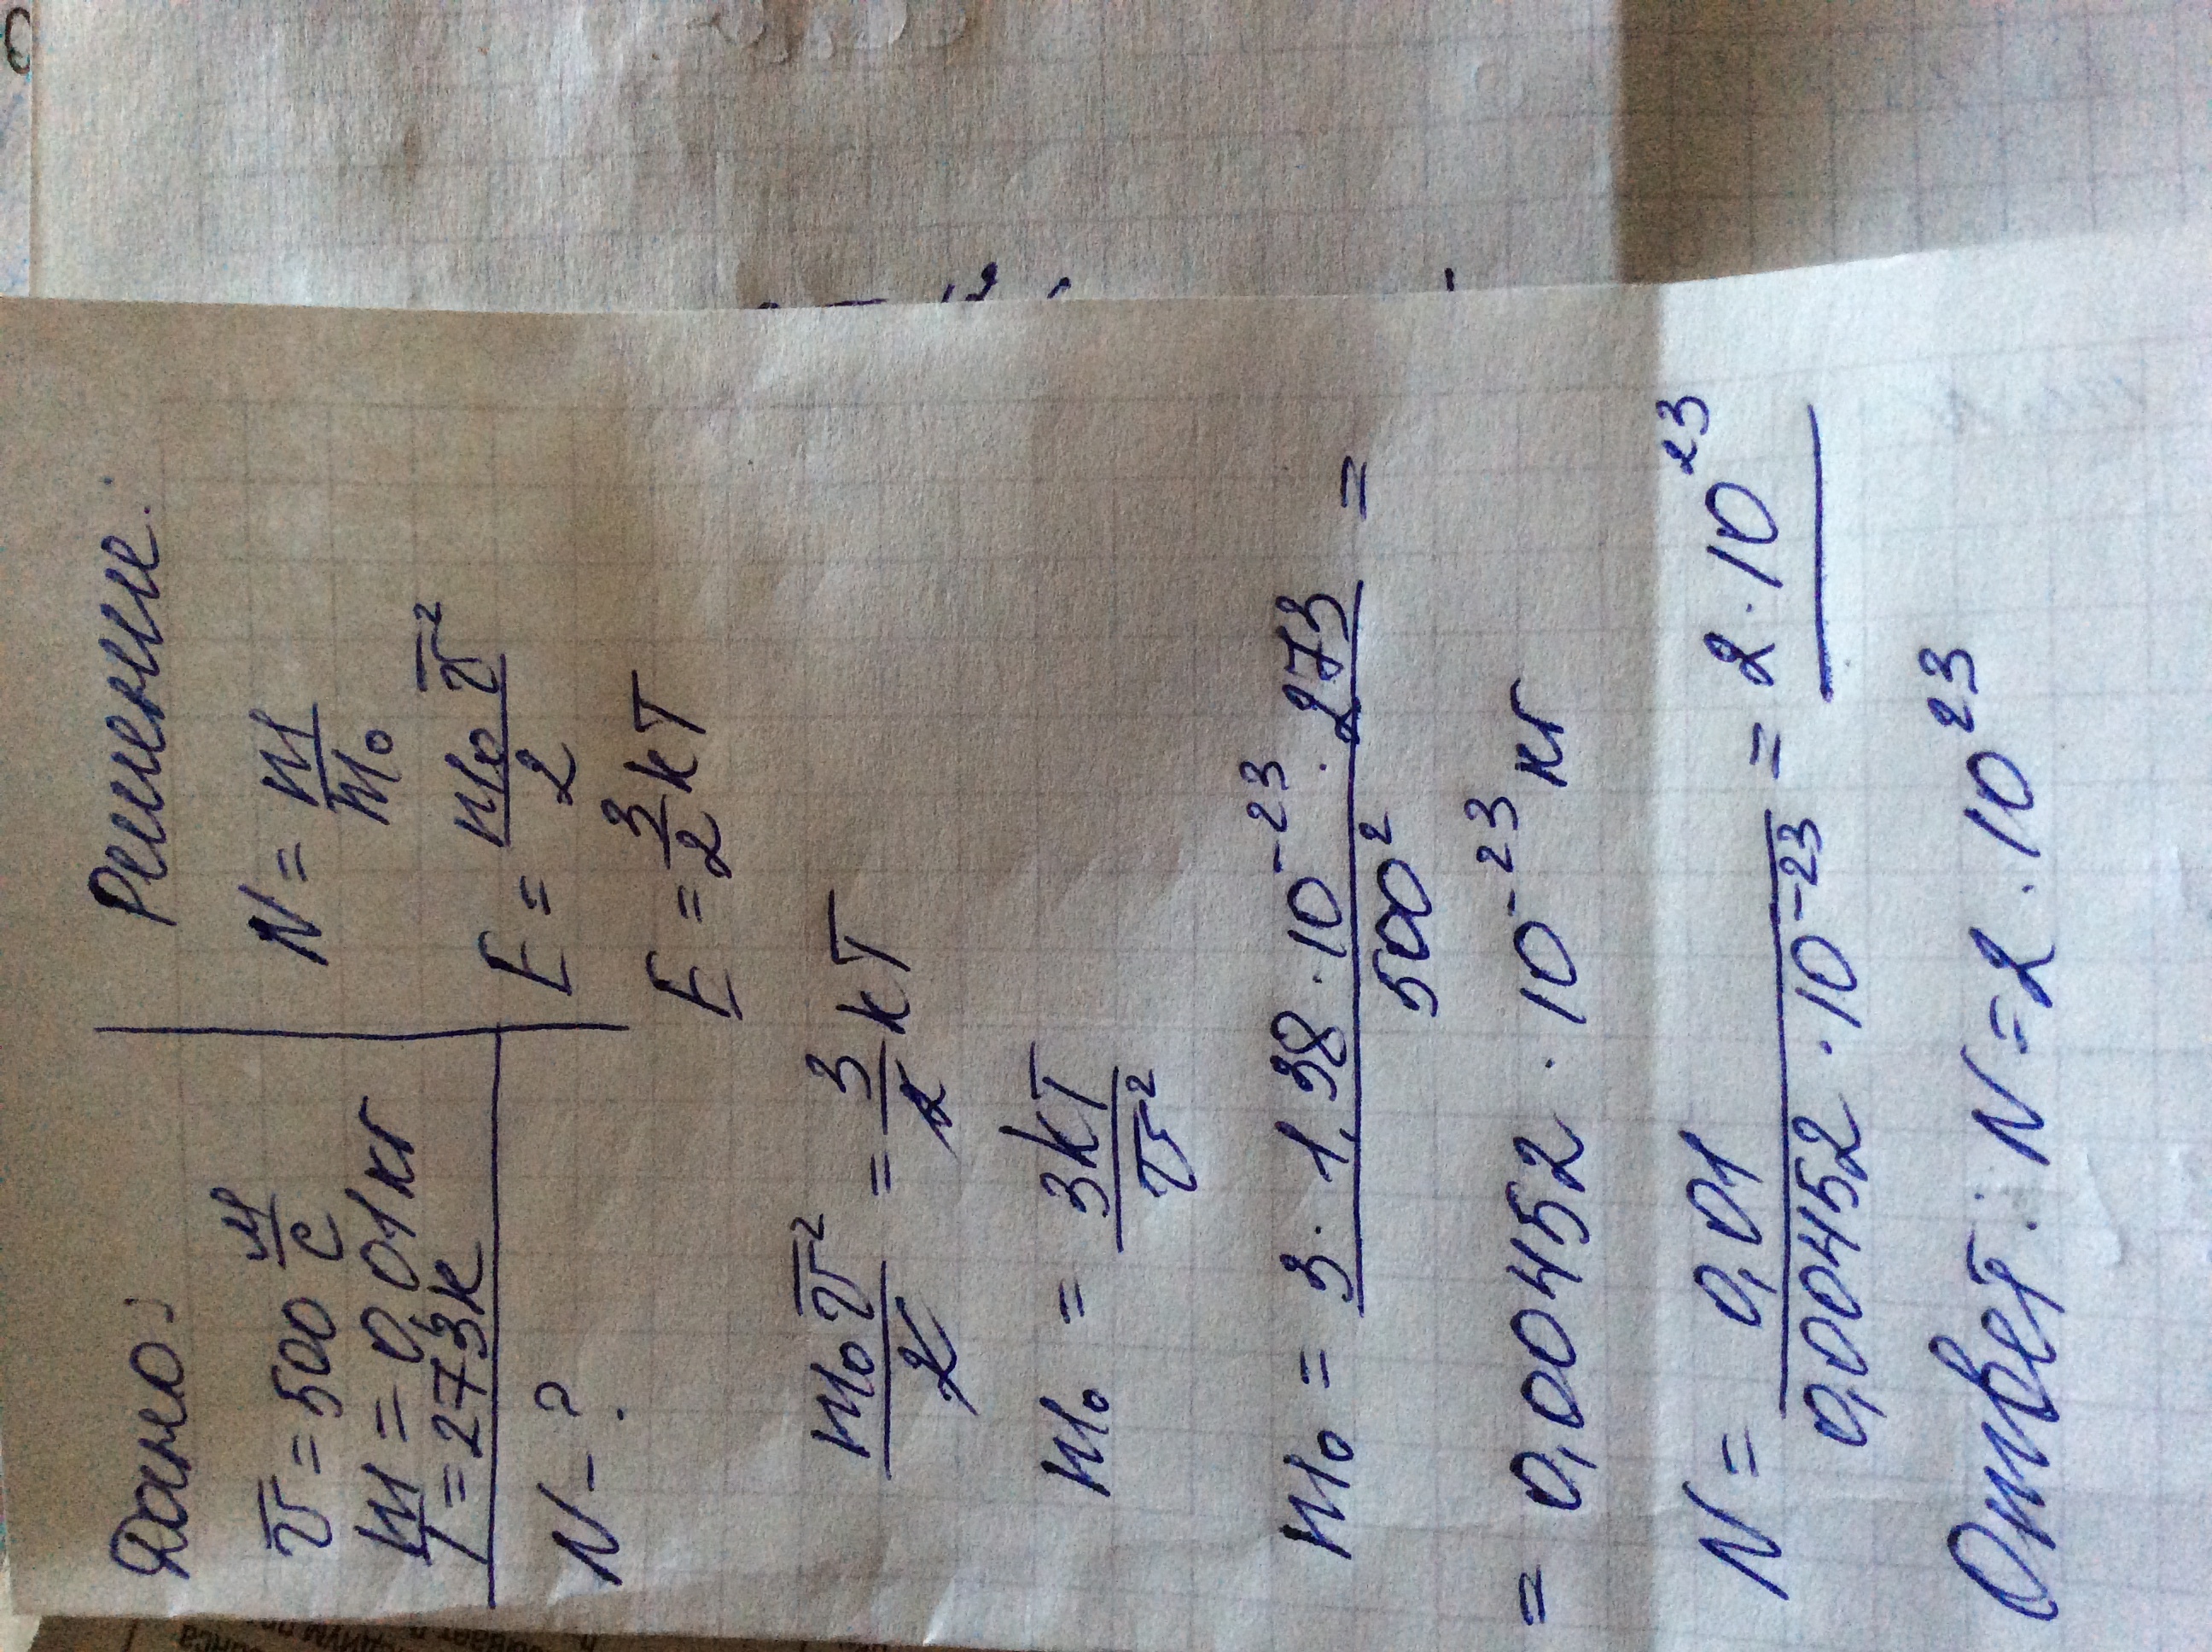 Дано:
v̅ = 500 м/с
m = 0,01 кг
T = 273 к
N - ?
Решение:
N = m/m₀
E = m₀v̅²/2
E = 3/2 kT
m₀v̅²/2 = 3/2 kT
m₀ = 3kT/v̅²
m₀ = 3 · 1,38 · 10⁻²³ · 273/500² =
= 0,00452 · 10⁻²³ кг
N = 0,01/0,00452 · 10⁻²³ = 2 · 10²³
Ответ: N = 2 · 10²³